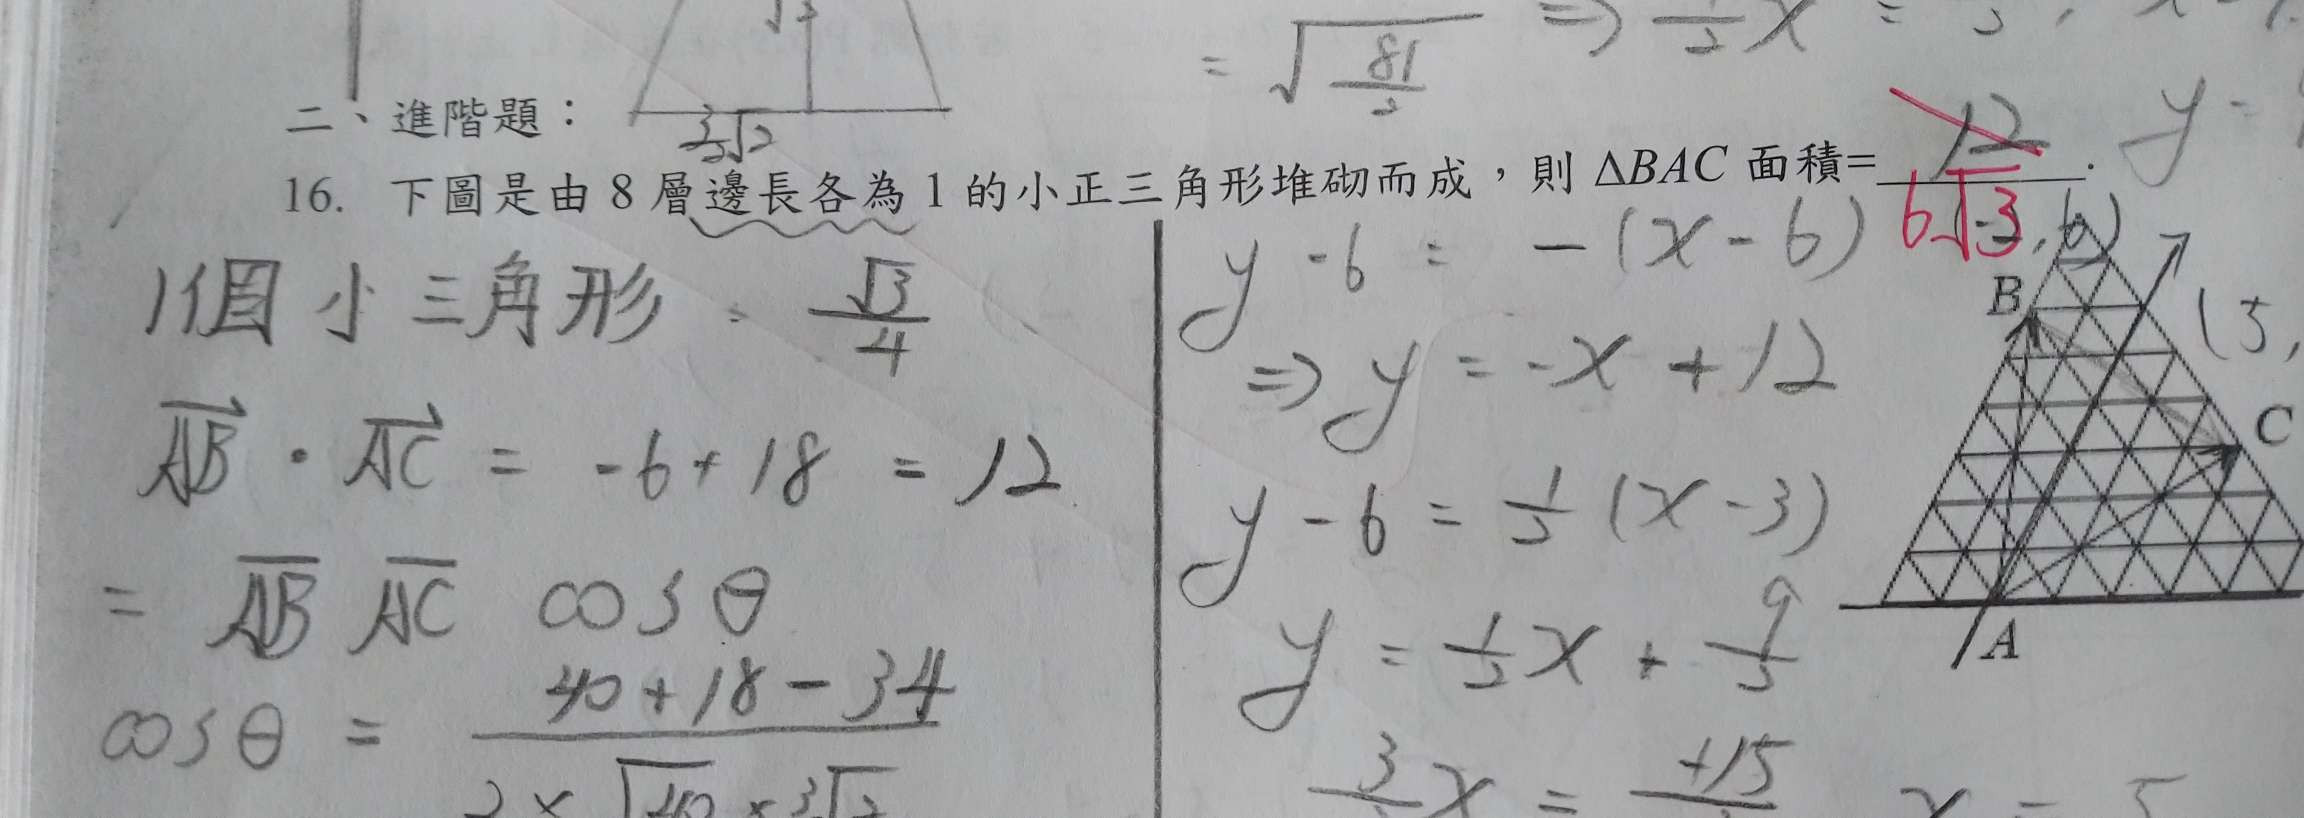 = √81/2
⇒ 1/2 x =
二、進階題：
3/2 √2
16. 下圖是由 8 層邊長各為 1 的小正三角形堆砌而成，則 ΔBAC 面積= 12 .
6√3
y =
1個小三角形 = √3/4
AB · AC = -6+18 = 12
= AB AC cosθ
cosθ = 40+18-34
2 × √40 × 3√2
y-6 = -(x-6)
⇒ y = -x+12
y-6 = 1/2 (x-3)
y = 1/2 x + 9/2
3/2 x = +15
x = 5
(-2,6)
B
(5,
C
A